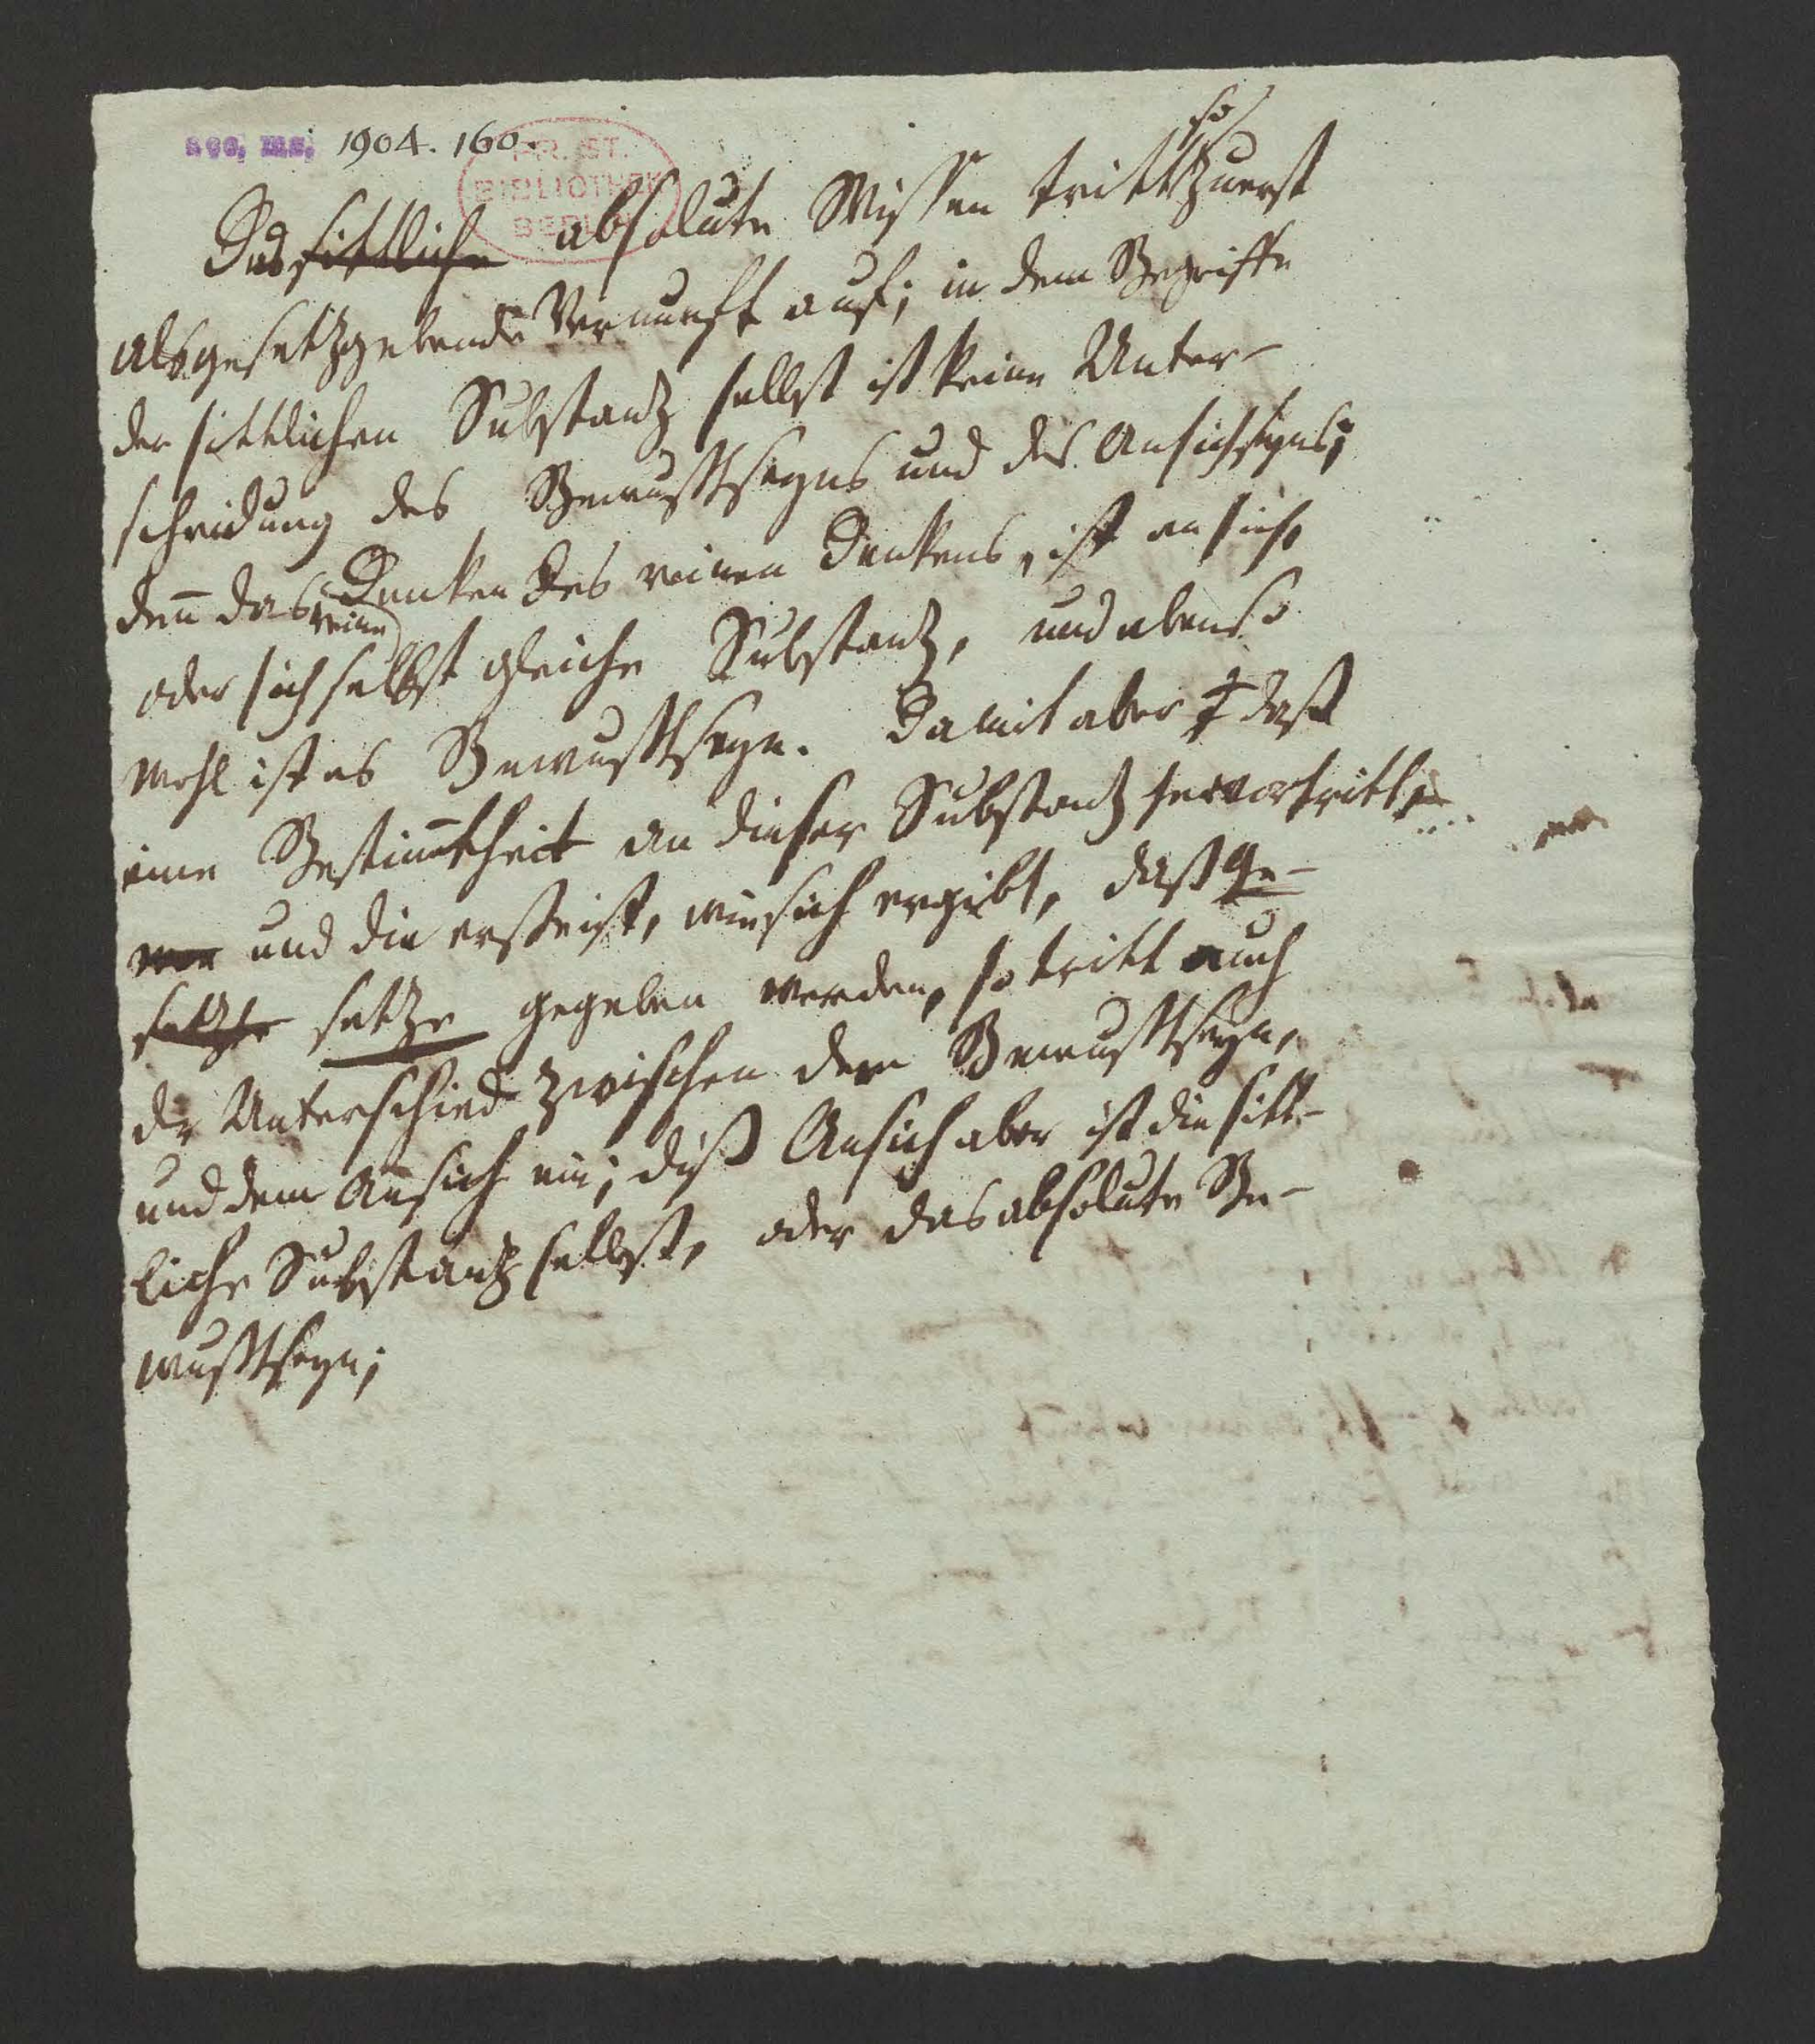 acc. ms. 1904. 160.
PR. ST.
BIBLIOTHEK
BERLIN
so
Das sittliche absolute Wissen tritt zuerst
als gesetzgebende Vernunft auf; in dem Begriffe
der sittlichen Substanz selbst ist keine Unter-
scheidung des Bewußtseyns und des Ansichseyns;
deñ das Denken des reinen Denkens, ist an sich
reine
oder sich selbst gleiche Substanz, und ebenso
wohl ist es Bewußtseyn. Damit aber daß
eine Bestim̄theit an dieser Substanz hervortritt,
und die erste ist, wie sich ergibt, daß Ge-
setze setze gegeben werden, so tritt auch
der Unterschied zwischen dem Bewußtseyn,
und dem Ansich ein; diß Ansich aber ist die sitt-
liche Substanz selbst, oder das absolute Be-
wußtseyn;